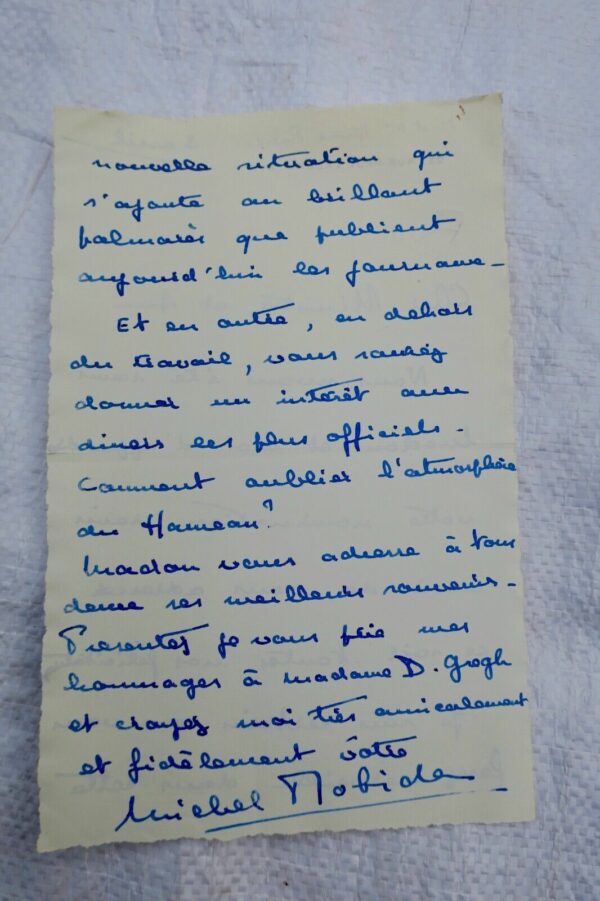 nouvelle situation qui
s'ajoute au brillant
palmarès que publient
aujourd'hui les journaux -
Et en outre, en dehors
du travail, vous saurez
donner un intérêt aux
diners les plus officiels -
Comment oublier l'atmosphère
du Hameau ?
Madou vous adresse à tous
deux ses meilleurs souvenirs -
Présentez je vous prie mes
hommages à madame D. Grogh
et croyez moi très amicalement
et fidèlement vôtre
Michel